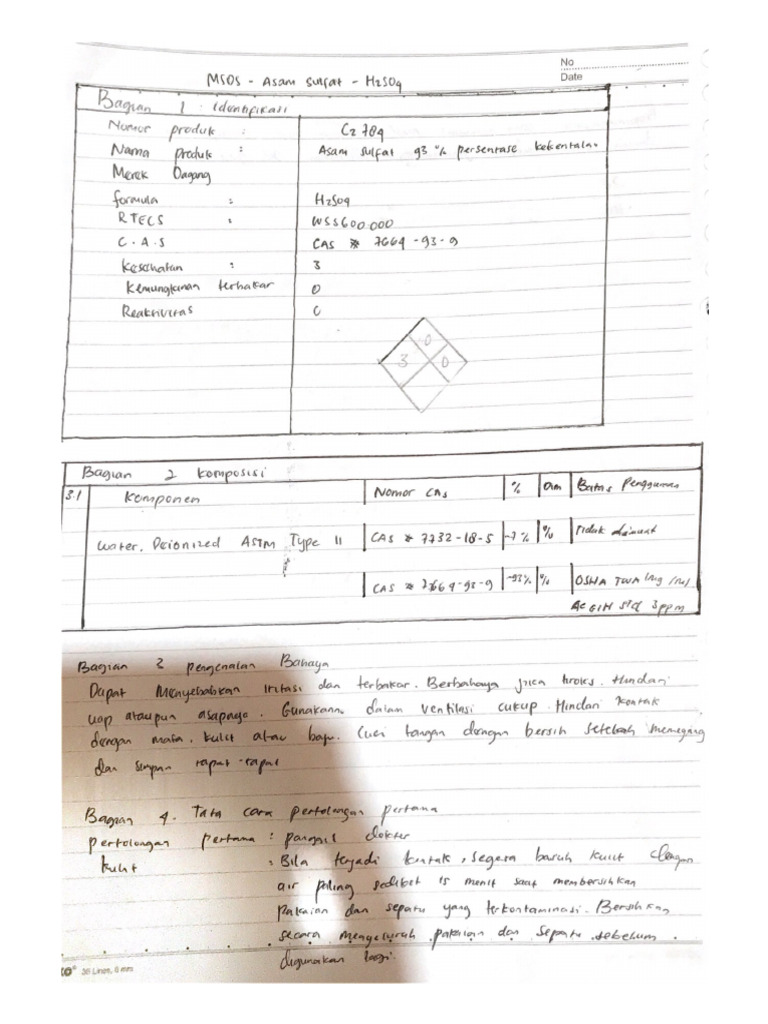 No
Date
MSDS - Asam Sulfat - H2SO4
Bagian 1 : Identifikasi
Nomor produk : C2789
Nama produk : Asam sulfat 93 % persentase kekentalan
Merek Dagang
formula : H2SO4
RTECS : WS5600.000
C.A.S CAS # 7664-93-9
Kesehatan : 3
Kemungkinan terbakar 0
Reaktivitas 0
0
3 0
Bagian 2 Komposisi
3.1 Komponen Nomor CAS % Batas Penggunaan
Water. Deionized ASTM Type II CAS # 7732-18-5 ~7% % Tidak dimuat
CAS # 7664-93-9 ~93% % OSHA TWA 1mg /m3
ACGIH 3ppm
Bagian 3 pengenalan Bahaya
Dapat Menyebabkan Iritasi dan terbakar. Berbahaya jika Hindari
uap ataupun asapnya. Gunakan dalam ventilasi cukup. Hindari kontak
dengan mata, kulit atau baju. Cuci tangan dengan bersih setelah memegang
dan simpan rapat-rapat
Bagian 4. Tata cara pertolongan pertama
pertolongan pertama : panggil dokter
kulit : Bila terjadi kontak, segera basuh kulit dengan
air paling sedikit 15 menit saat membersihkan
Pakaian dan sepatu yang terkontaminasi. Bersihkan
secara menyeluruh pakaian dan sepatu sebelum
digunakan lagi.
36 Lines, 6 mm